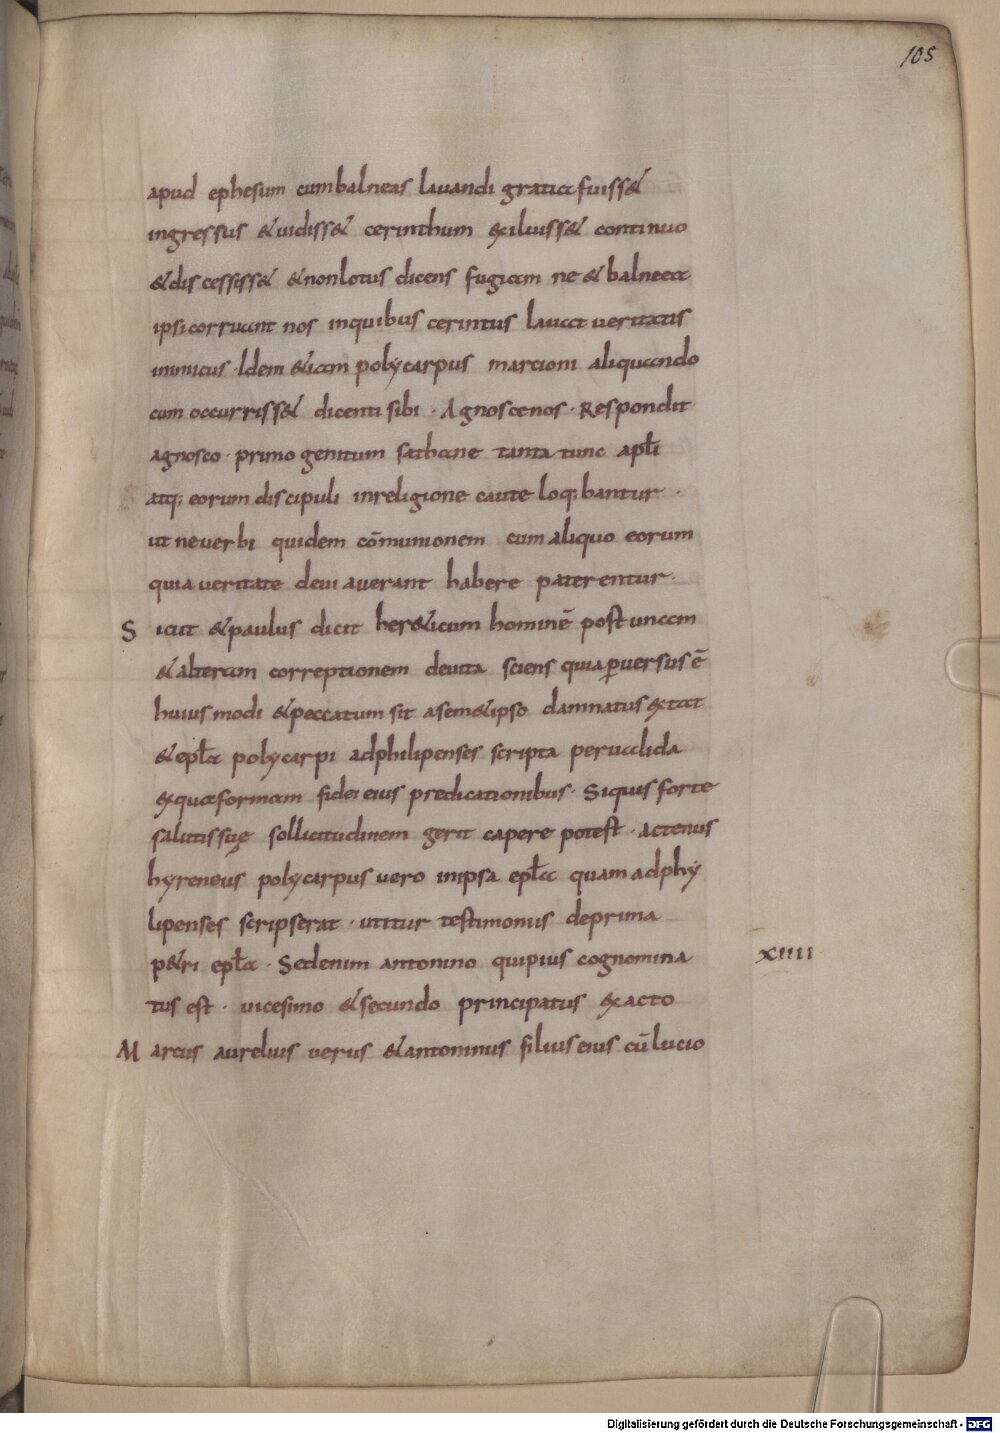 105
apud ephesum cum balneas lauandi gratia fuiss&
ingressus &uidiss& cerinthum exiluiss& continuo
&discessiss& &nonlotus dicens fugiam ne & balneea
ipsi corruant nos inquibus cerintus lauat ueritatis
inimicus · Idem &iam polycarpus marcioni aliquando
cum occurriss& dicenti sibi · Agnoscenos · Respondit
agnosco · primo genitum sathane tanta tunc apłi
atq; eorum discipuli inreligione caute loq;bantur ·
ut neuerbi quidem cōmunionem cum aliquo eorum
quia ueritate deui auerant habere paterentur ·
Sicut &paulus dicit her&icum hominē post unam
&alteram correptionem deuita sciens quia ꝑuersus ē
huius modi &peccatum sit asem&ipso damnatus extat
&epła polycarpi adphilipenses scripta perualida
exqua formam fidei eius predicationibus · Siquis forte
salutis suę sollicitudinem gerit capere potest · actenus
hyreneus polycarpus uero inipsa epła quam adphy
lipenses scripserat · utitur testimoniis deprima
p&ri epła · Sedenim antonino quipius cognomina
xiiii
tus est · uicesimo &secundo principatus exacto
Marcus aurelius uerus &antoninus filius eius cū lucio
Digitalisierung gefördert durch die Deutsche Forschungsgemeinschaft - DFG